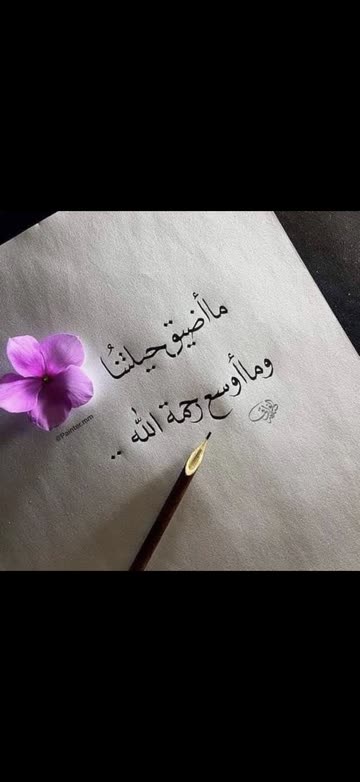 ماأضيق حيلتنا
وماأوسع رحمة الله ..
@Painter.mm